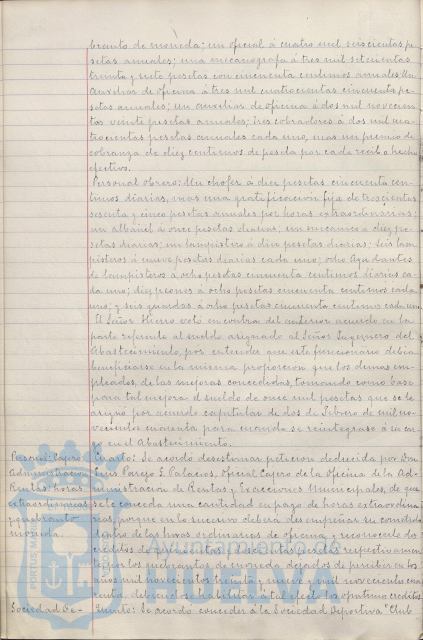 branto de moneda; un oficial á cuatro mil seiscientas pe-
setas anuales; una mecanógrafa á tres mil setecientas
treinta y siete pesetas con cincuenta centimos anuales; Un
Auxiliar de oficina á tres mil cuatrocientas cincuenta pe-
setas anuales; un auxiliar de oficina á dos mil novecien-
tas veinte pesetas anuales; tres cobradores á dos mil cua-
trocientas pesetas anuales cada uno, mas un premio de
cobranza de diez centimos de peseta por cada recibo hecho
efectivo.
Personal obrero: Un chofer a diez pesetas cincuenta cen-
timos diarias, mas una gratificacion fija de trescientas
sesenta y cinco pesetas anuales por horas extraordinarias;
un albañil á once pesetas diarias; un mecanico a diez pe-
setas diarias; un lampistero á diez pesetas diarias; seis lam-
pisteros á nueve pesetas diarias cada uno; ocho Ayudantes
de lampisteros á ocho pesetas cincuenta centimos diarias ca-
da uno; diez peones á ocho pesetas cincuenta centimos cada
uno; y seis guardas á ocho pesetas cincuenta centimos cada uno.
El Señor Hierro votó en contra del anterior acuerdo en la
parte referente al sueldo asignado al Señor Ingeniero del
Abastecimiento, por entender que este funcionario debia
beneficiarse en la misma proporcion que los demas em-
pleados, de las mejoras concedidas, tomando como base
para tal mejora el sueldo de once mil pesetas que se le
asignó por acuerdo capitular de dos de Febrero de mil no-
vecientos cuarenta para cuando se reintegrase á su car-
go en el Abastecimiento.
Personal: Cajero
Administracion
Rentas: horas
extraordinarias
y quebranto
moneda.
Cuarto: Se acordó desestimar peticion deducida por Don
Luis Parejo G. Palacios, Oficial Cajero de la Oficina de la Ad-
ministracion de Rentas y Exacciones Municipales, de que
se le conceda una cantidad en pago de horas extraordina-
rias, porque en lo sucesivo deberá desempeñar su cometido
dentro de las horas ordinarias de oficina y reconocerle
creditos de pesetas respectivamen-
te por los quebrantos de moneda dejados de percibir en los
años mil novecientos treinta y nueve y mil novecientos cua-
renta, debiendose habilitar á tal efecto los oportunos creditos.
Sociedad De-
Quinto: Se acordó conceder á la Sociedad Deportiva "Club
Ayuntamiento de